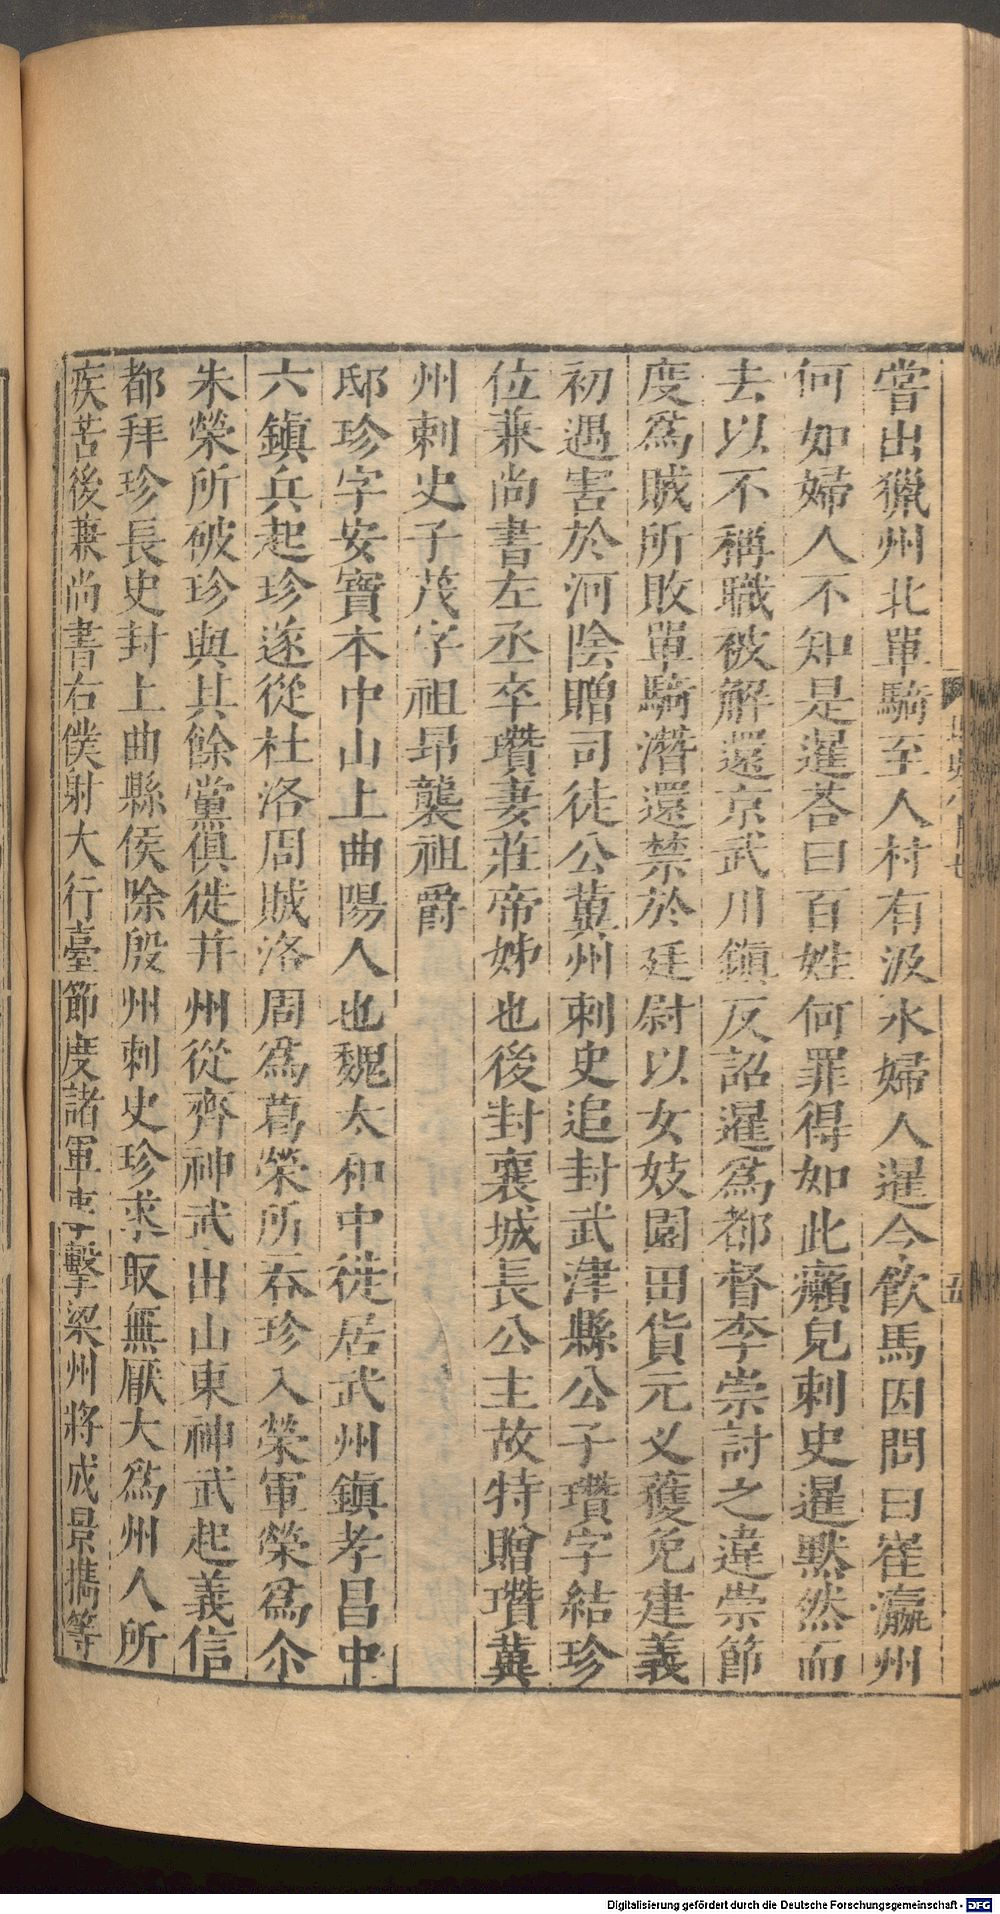 嘗出獵州北單騎至人村有汲水婦人暹令飲馬因問曰崔瀛州
何如婦人不知是暹荅曰百姓何罪得如此癩兒刺史暹默然而
去以不稱職被解還京武川鎮反詔暹為都督李崇討之違崇節
度為賊所敗單騎潛還禁於廷尉以女妓園田貨元义獲免建義
初遇害於河陰贈司徒公冀州刺史追封武津縣公子瓚字結珍
位兼尚書左丞卒瓚妻莊帝姊也後封襄城長公主故特贈瓚冀
州刺史子茂字祖昻襲祖爵
邸珍字安寶本中山上曲陽人也魏太和中徙居武州鎮孝昌中
六鎮兵起珍遂從杜洛周賊洛周為葛榮所吞珍入榮軍榮為尒
朱榮所破珍與其餘黨俱徙并州從齊神武出山東神武起義信
都拜珍長史封上曲縣侯除殷州刺史珍求取無厭大為州人所
疾苦後兼尚書右僕射大行臺節度諸軍事擊梁州將成景㩦等
五
Digitalisierung gefördert durch die Deutsche Forschungsgemeinschaft - DFG